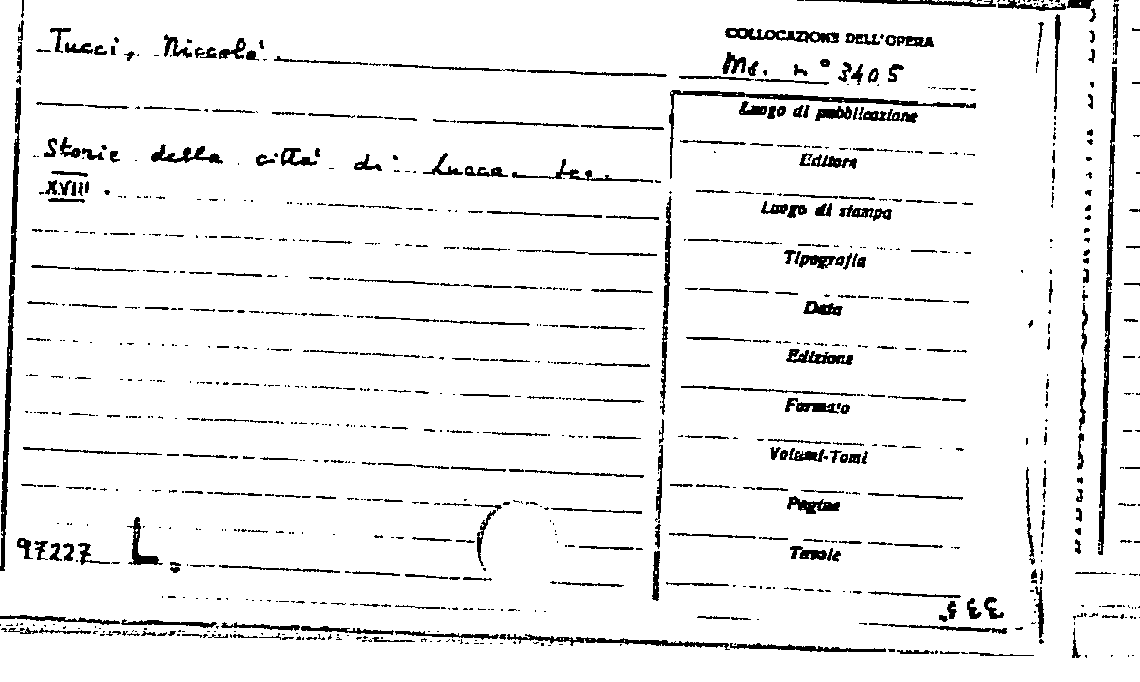 Tucci, Niccolò.
COLLOCAZIONE DELL'OPERA
Ms. n° 3405
Storie della città di Lucca. Sec.
XVIII.
Luogo di pubblicazione
Editore
Luogo di stampa
Tipografia
Data
Edizione
Formato
Volumi-Tomi
Pagine
Tavole
97227 L.